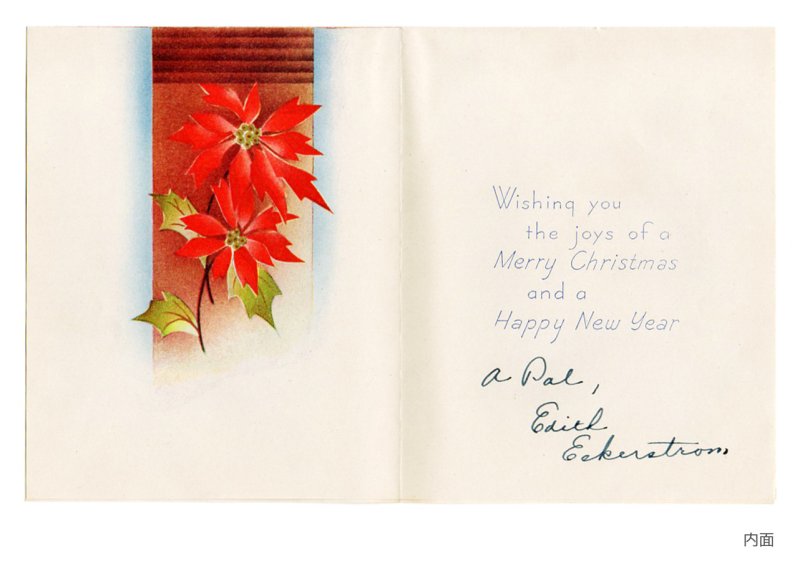 Wishing you
the joys of a
Merry Christmas
and a
Happy New Year
A Pal,
Edith
Eckerstrom
内面